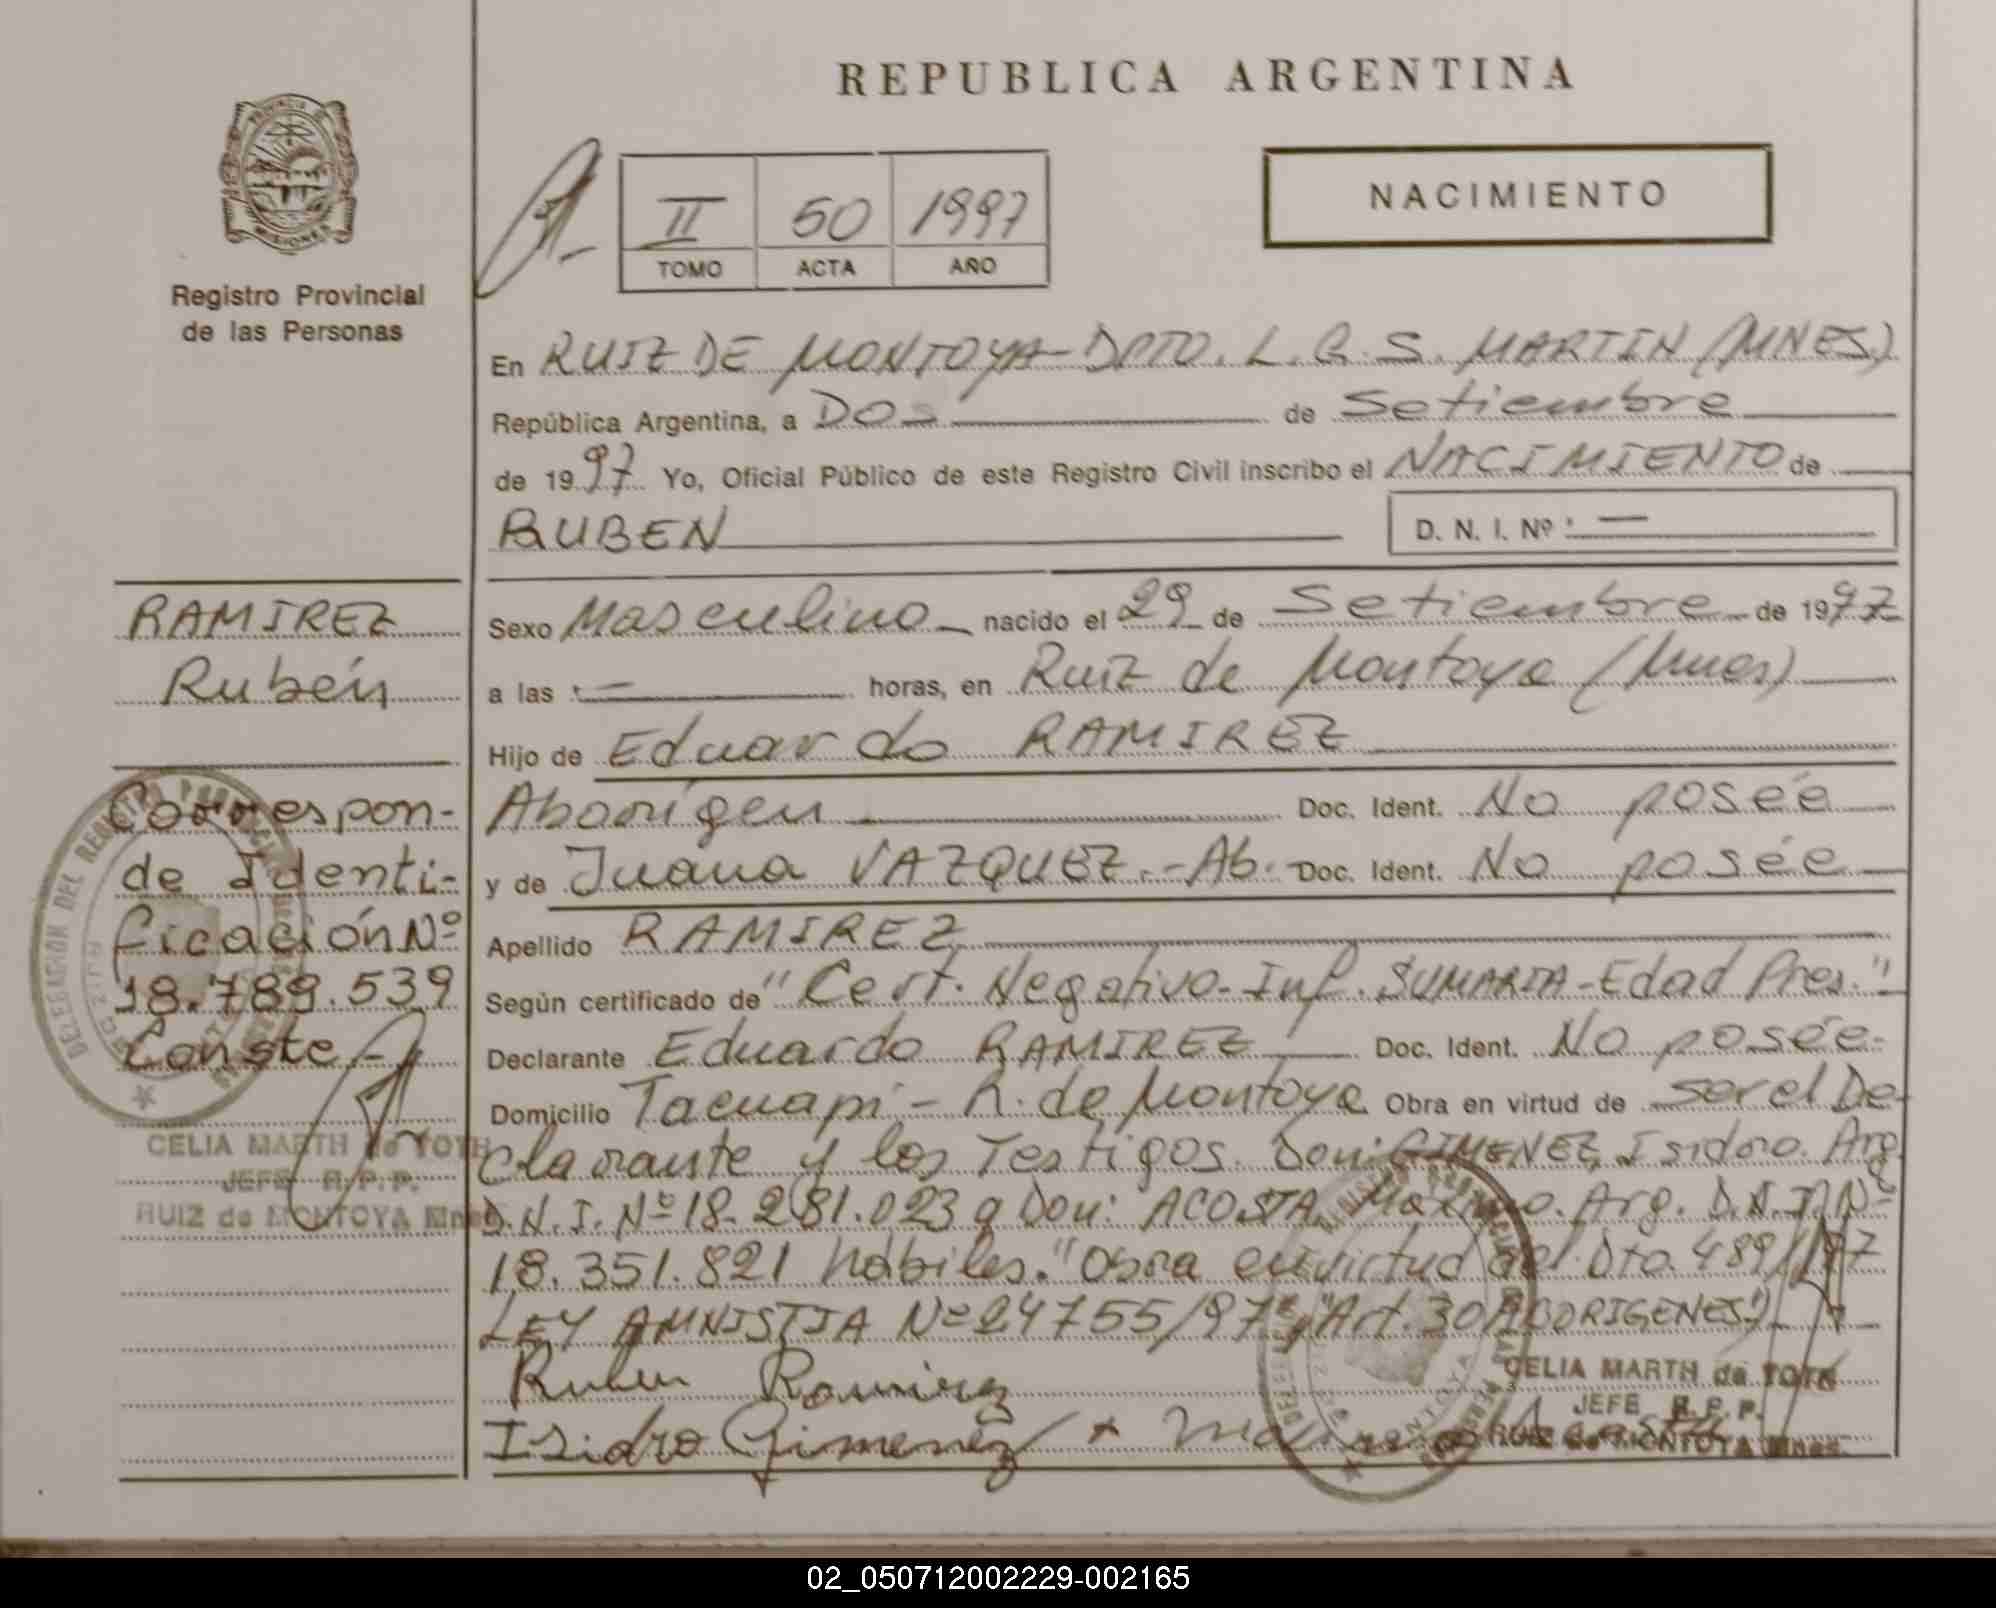 REPUBLICA ARGENTINA
PROVINCIA DE
MISIONES
Registro Provincial
de las Personas
II 50 1997
TOMO ACTA AÑO
NACIMIENTO
En RUIZ DE MONTOYA-DPTO. L. G. S. MARTIN (MNES)
República Argentina, a Dos de Setiembre
de 1997 Yo, Oficial Público de este Registro Civil inscribo el NACIMIENTO de
RUBEN
D. N. I. Nº : —
Sexo Masculino nacido el 29 de Setiembre de 1977
a las : — horas, en Ruiz de Montoya (Mnes)
Hijo de Eduardo RAMIREZ
Aborigen Doc. Ident. No posée
y de Juana VAZQUEZ.-Ab.- Doc. Ident. No posée
Apellido RAMIREZ
Según certificado de "Cert. Negativo-Inf. SUMARIA-Edad Pres."
Declarante Eduardo RAMIREZ Doc. Ident. No posée-
Domicilio Tacuapi - R. de Montoya Obra en virtud de ser el De-
clarante y los Testigos. Don: GIMENEZ, Isidro. Arg.
D.N.I. Nº 18.281.023 y Don: ACOSTA, Máximo. Arg. D.N.I. Nº
18.351.821 hábiles. "Obra en virtud del Dto. 489/97
LEY AMNISTIA Nº 24755/97", "Art. 30 ABORIGENES")
Ruben Ramirez
Isidro Gimenez +
CELIA MARTH de TOTH
JEFE R.P.P.
RUIZ de MONTOYA Mnes.
RAMIREZ
Rubén
Correspon-
de Identi-
ficación Nº
18.789.539
Conste.-
DELEGACION DEL REGISTRO PROVINCIAL
CELIA MARTH de TOTH
JEFE R.P.P.
RUIZ de MONTOYA Mnes.
02_050712002229-002165